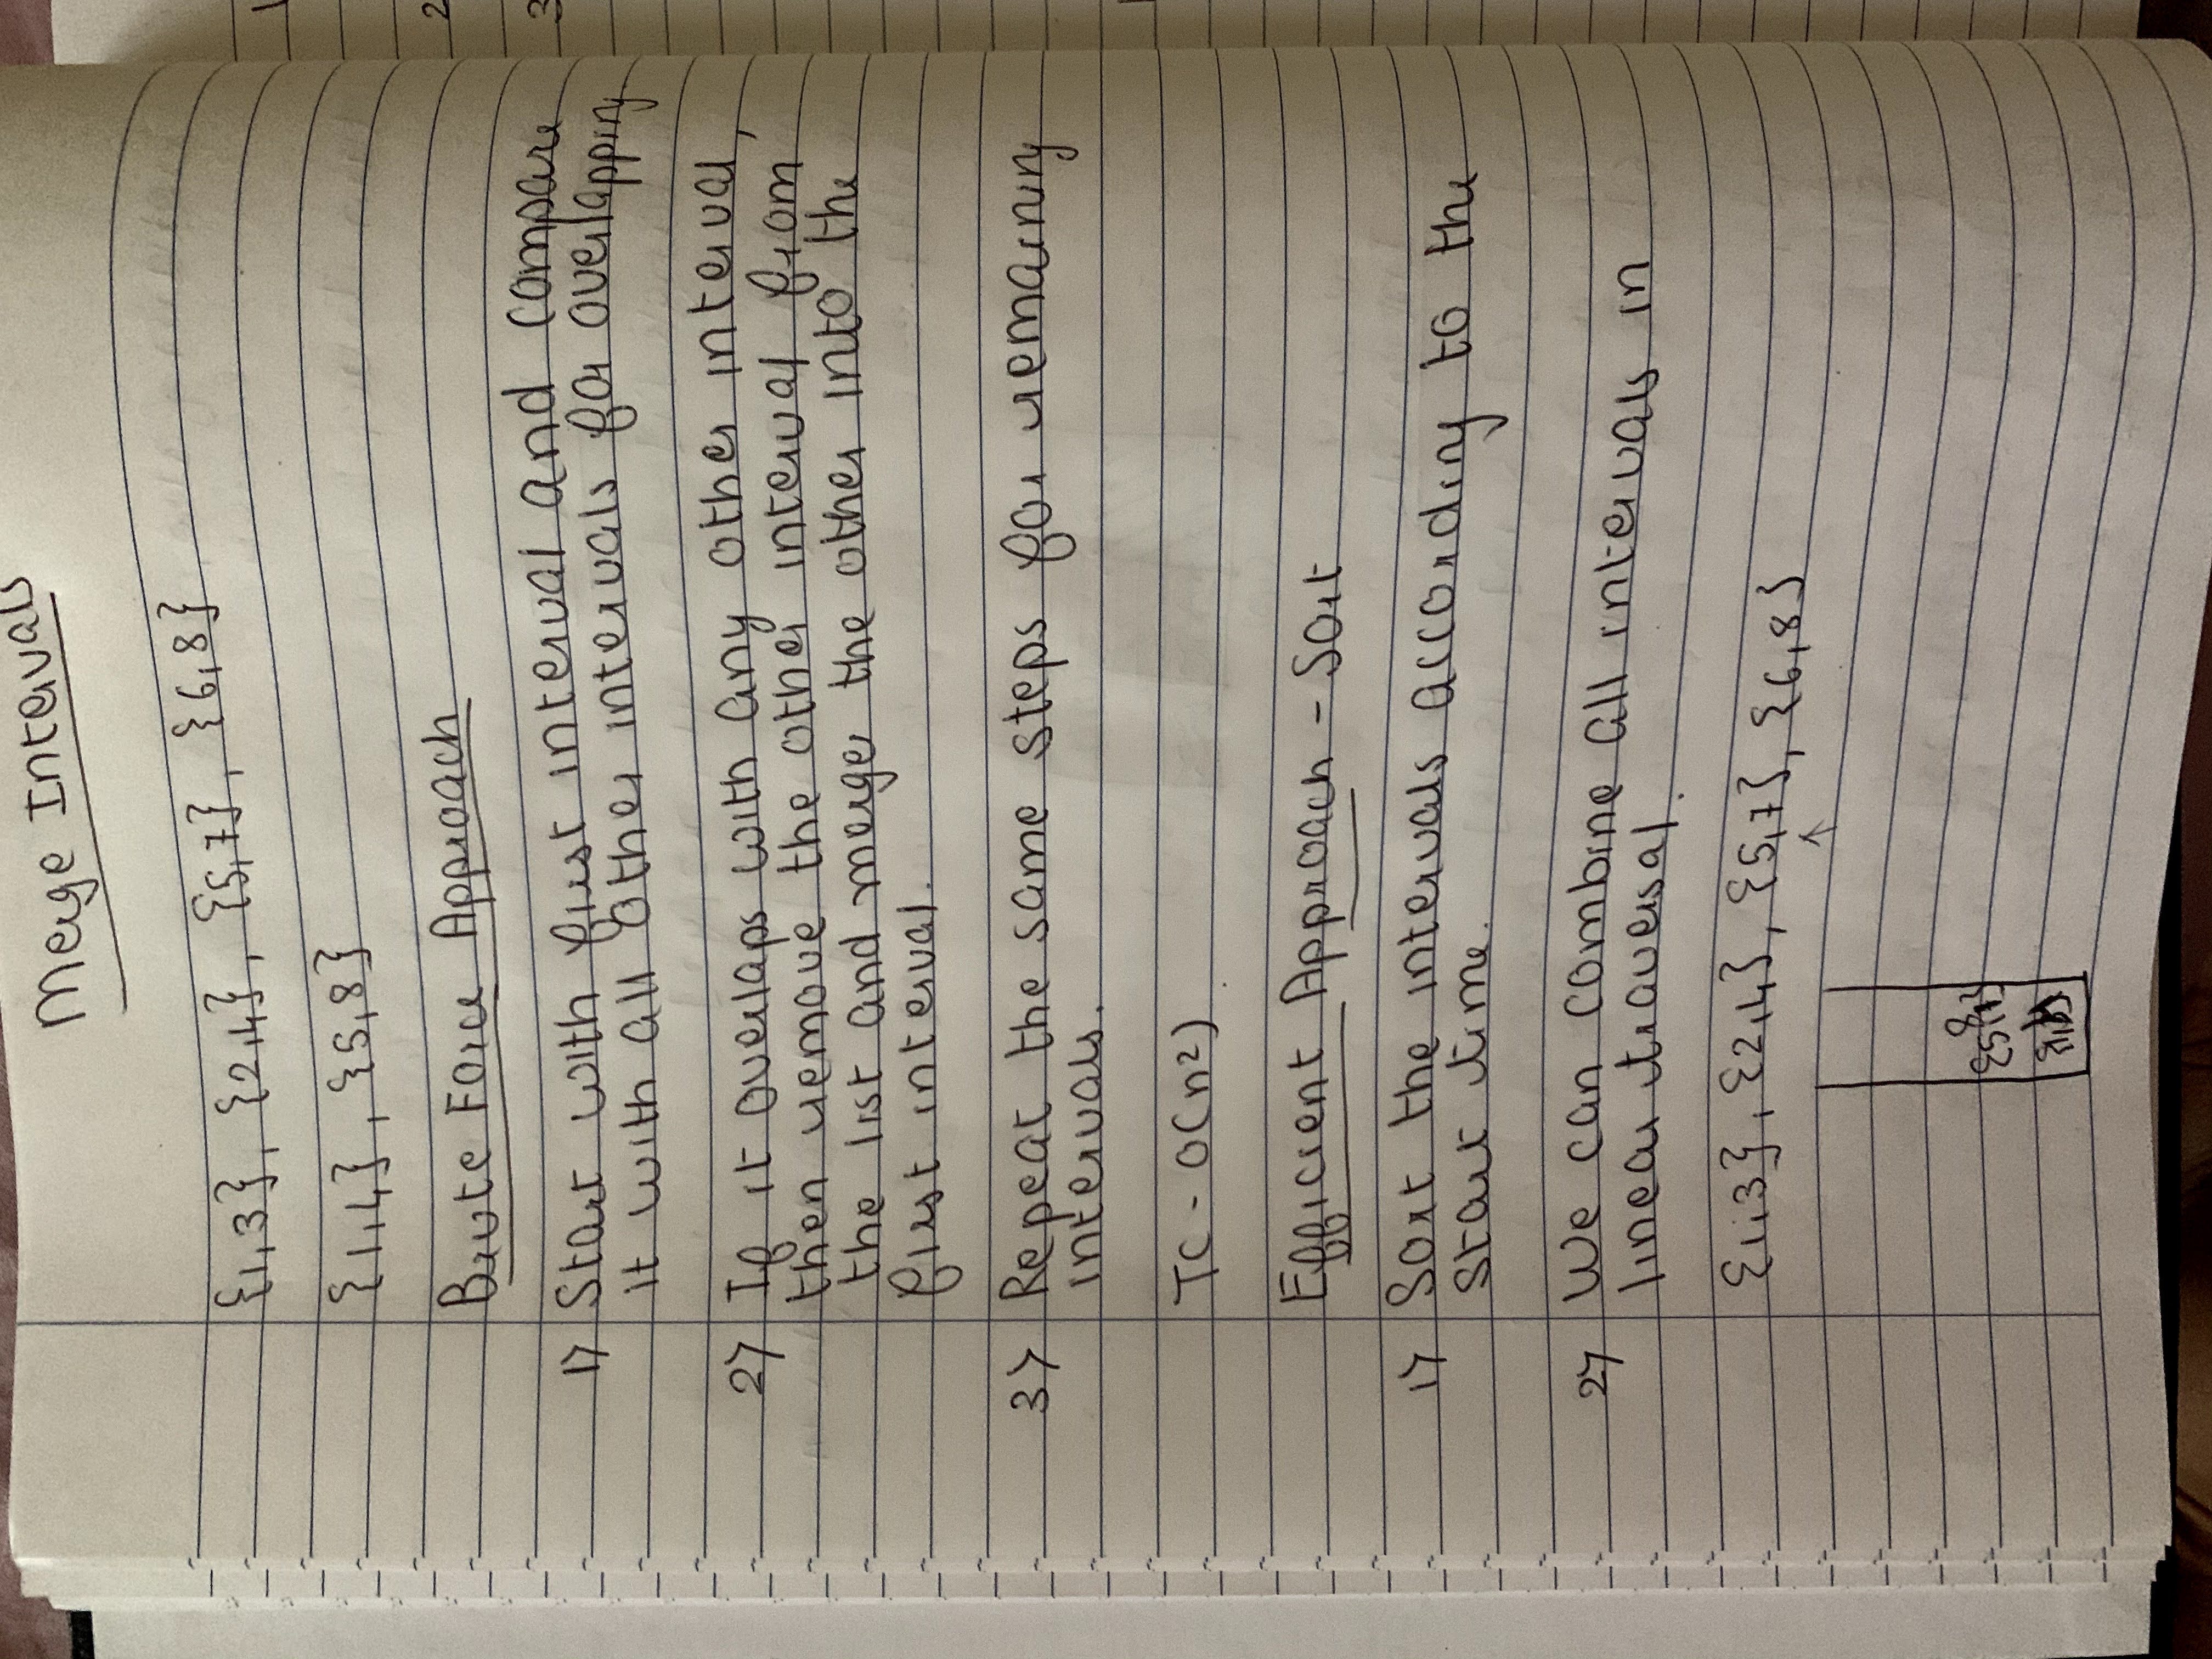 Merge Intervals
{1,3}, {2,4}, {5,7}, {6,8}
{1,4}, {5,8}
Brute Force Approach
1> Start with first interval and compare
it with all other intervals for overlapping
2> If it overlaps with any other interval,
then remove the other interval from
the list and merge the other into the
first interval.
3> Repeat the same steps for remaining
intervals.
TC - O(n2)
Efficient Approach - Sort
1> Sort the intervals according to the
start time.
2> We can combine all intervals in
linear traversal.
{1,3}, {2,4}, {5,7}, {6,8}
8
{5,7}
1
2
3